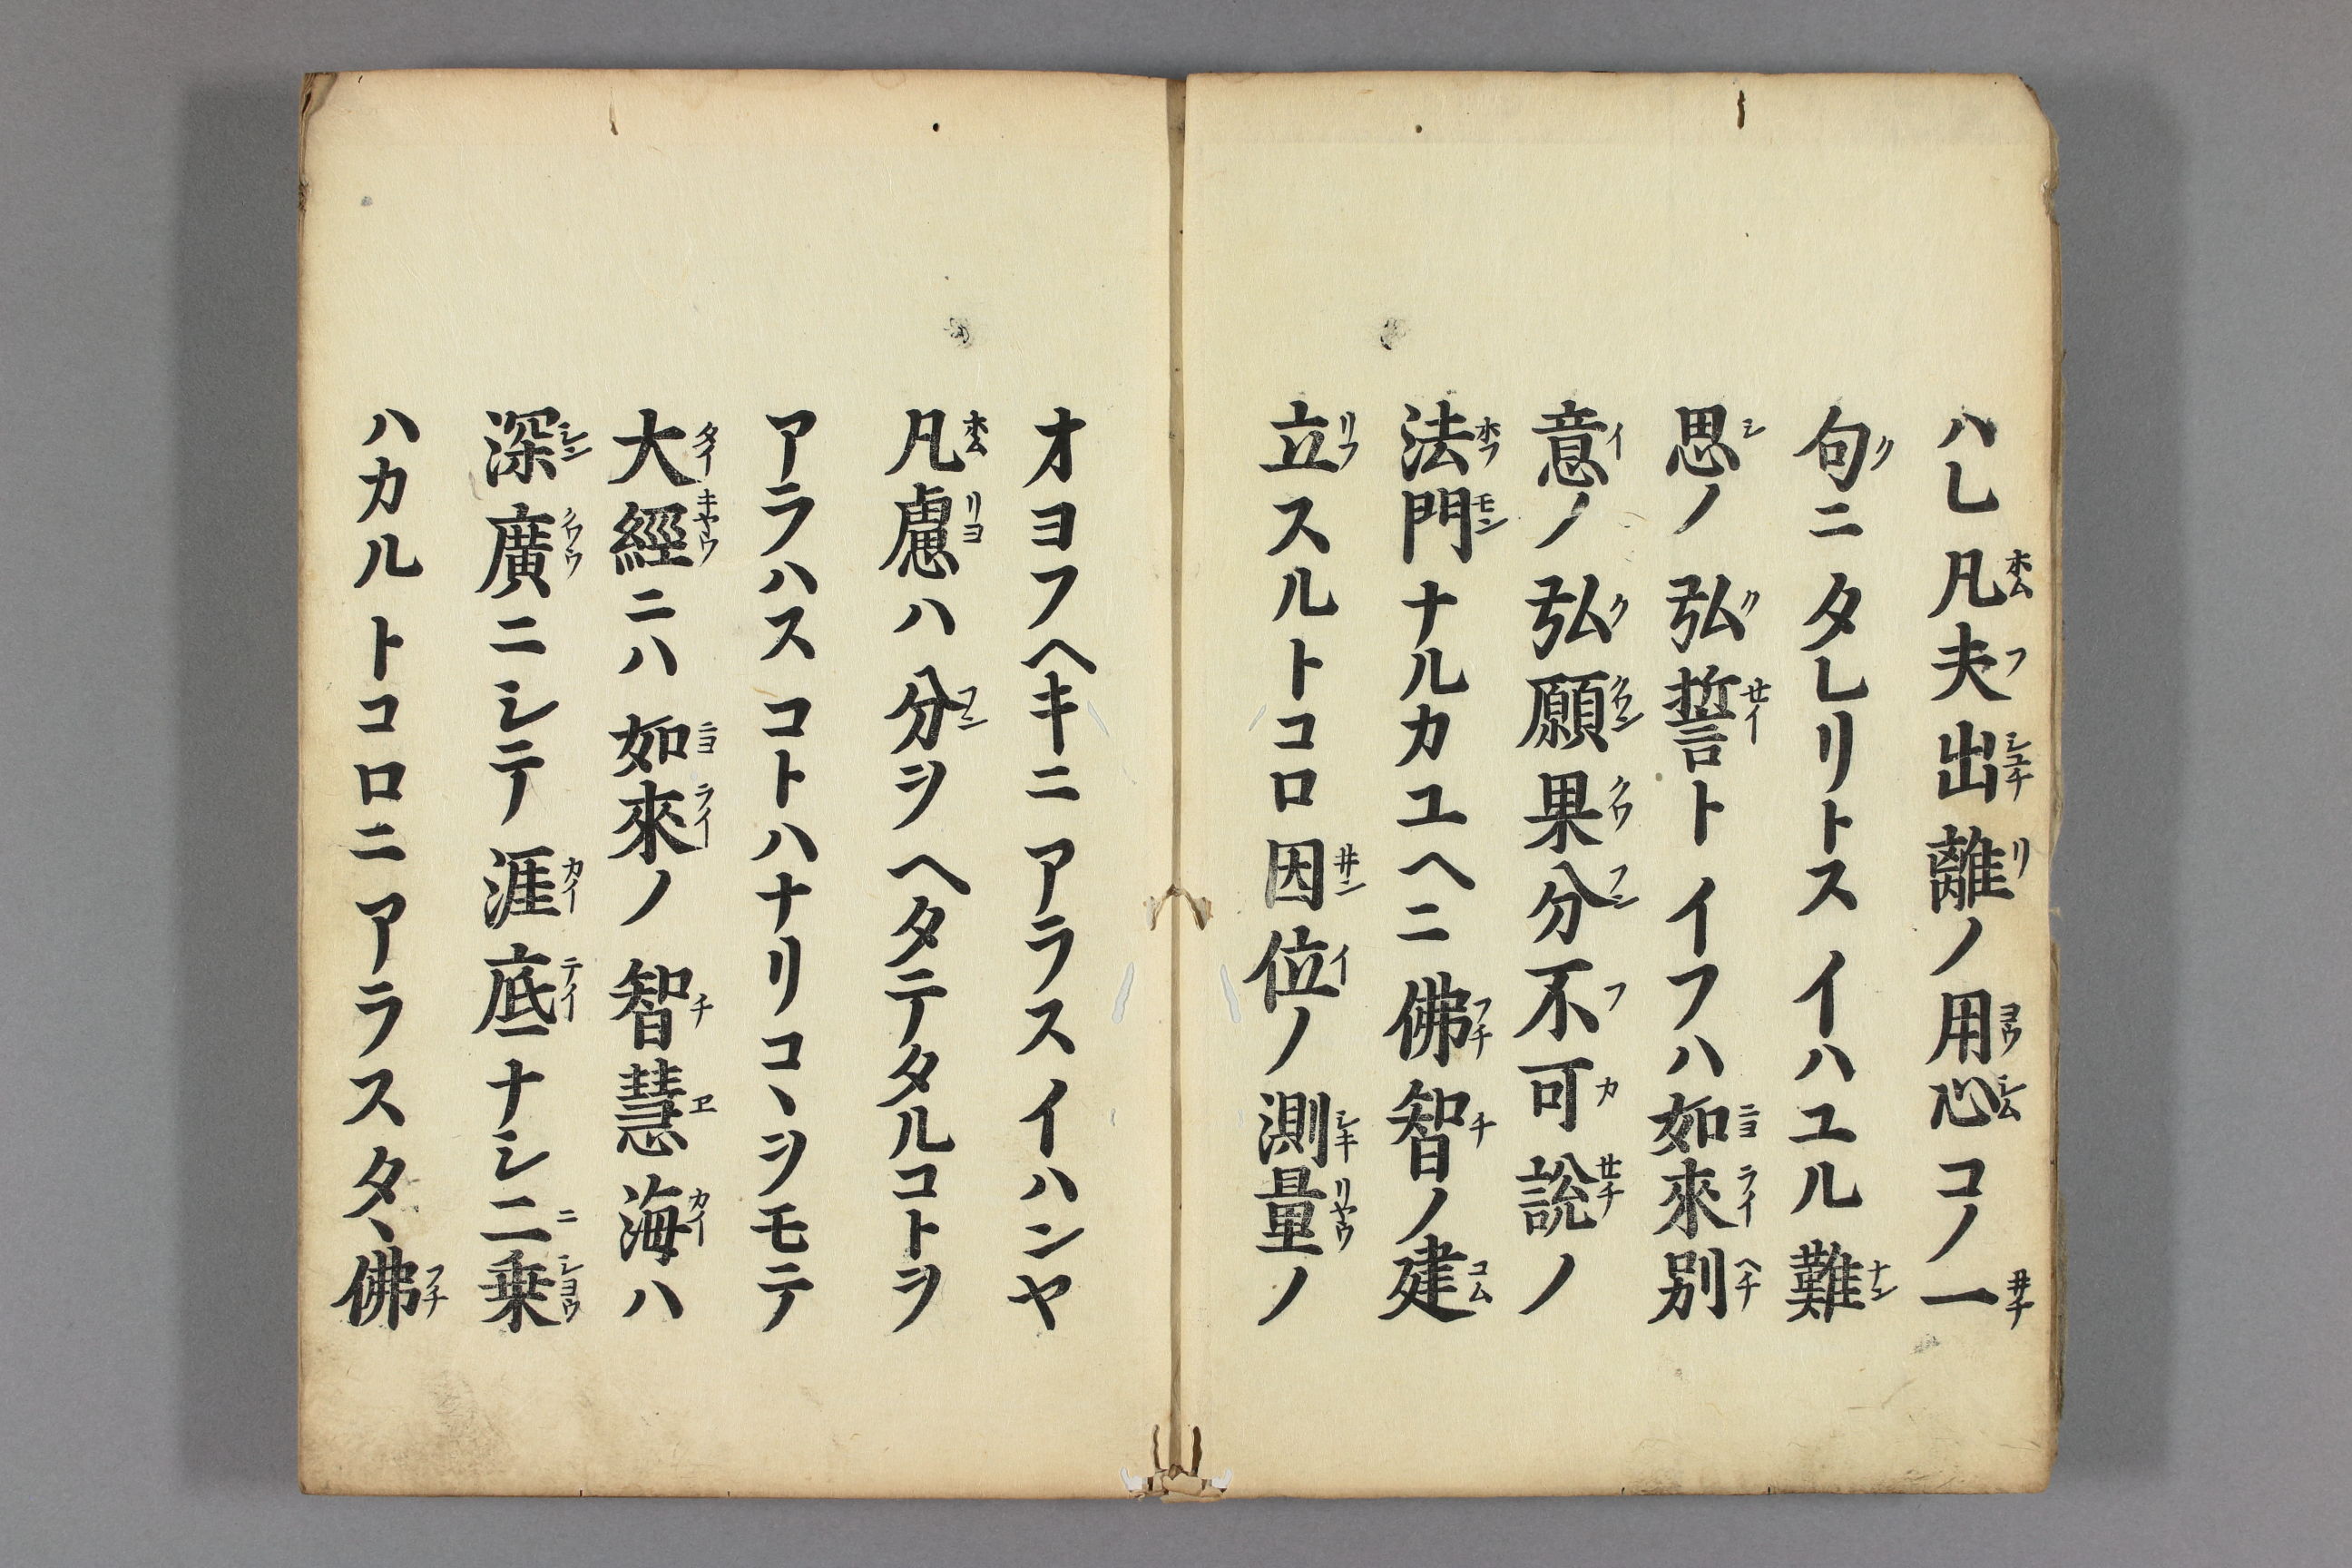 ハレ凡夫出離ノ用心コノ一
句ニタレリトスイハユル難
思ノ弘誓トイフハ如來別
意ノ弘願果分不可説ノ
法門ナルカユヘニ佛智ノ建
立スルトコロ因位ノ測量ノ
オヨフヘキニアラスイハンヤ
凡慮ハ分ヲヘタテタルコトヲ
アラハスコトハナリコヽヲモテ
大經ニハ如來ノ智慧海ハ
深廣ニシテ涯底ナシ二乗
ハカルトコロニアラスタヽ佛